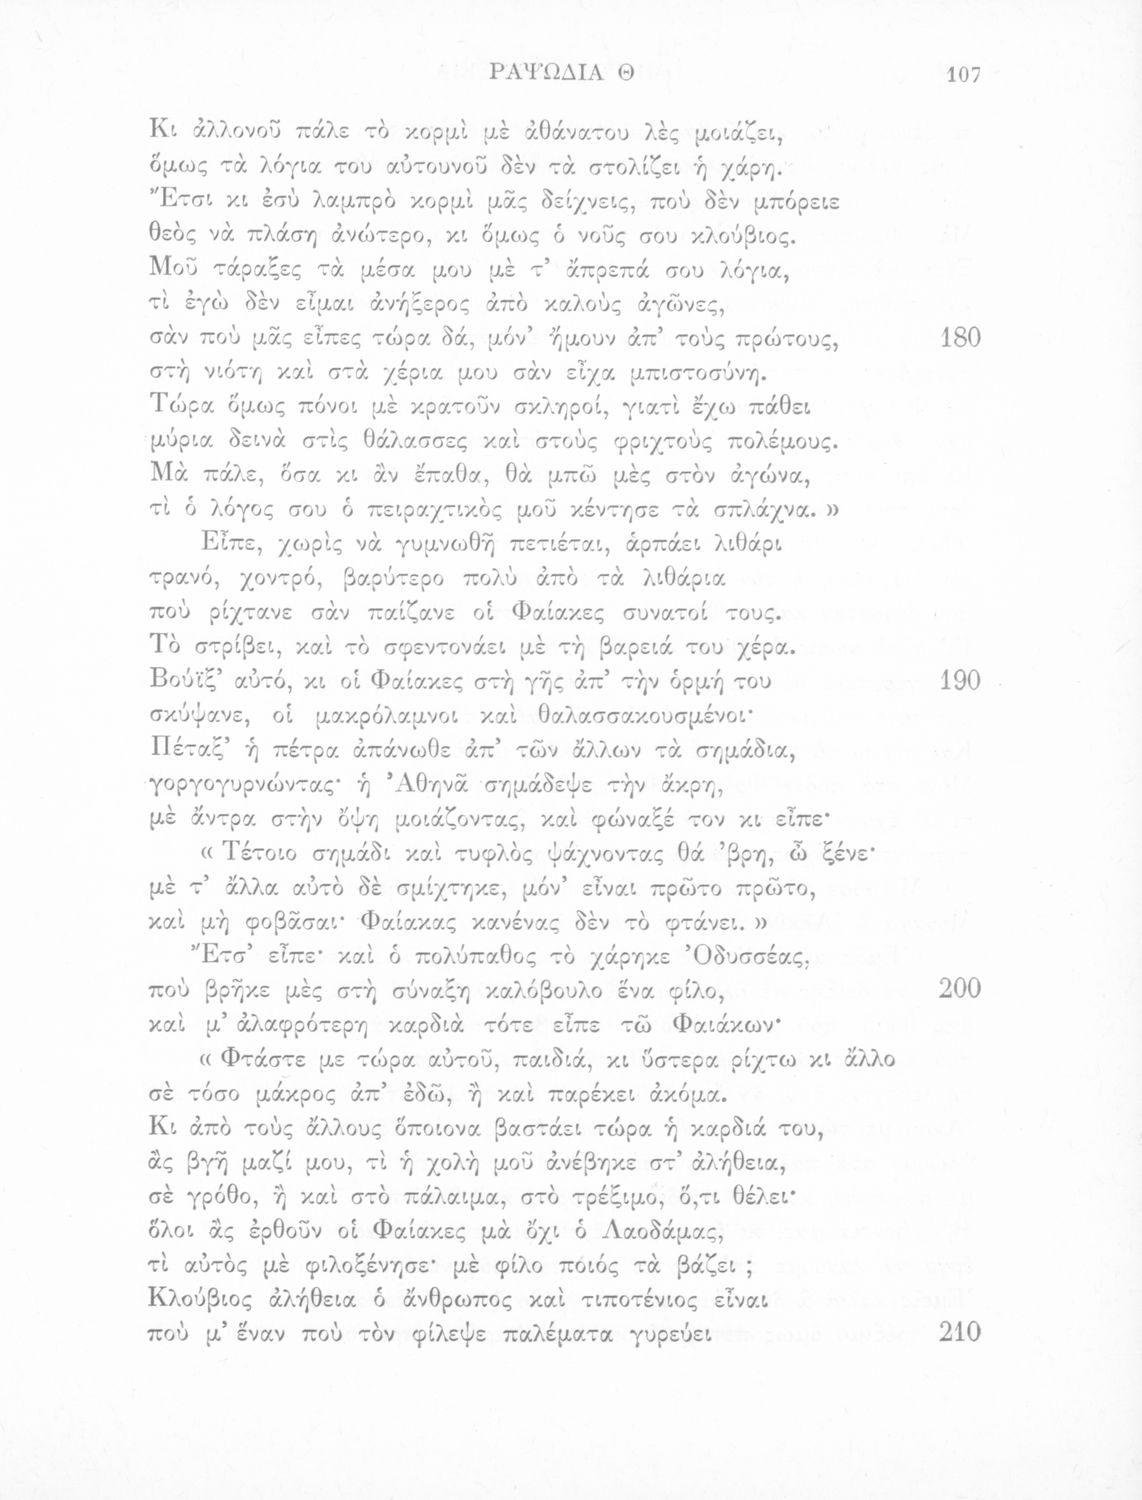 ΡΑΨΩΔΙΑ Θ 107
Κι ἀλλονοῦ πάλε τὸ κορμὶ μὲ ἀθάνατου λὲς μοιάζει,
ὅμως τὰ λόγια του αὐτουνοῦ δὲν τὰ στολίζει ἡ χάρη.
Ἔτσι κι ἐσὺ λαμπρὸ κορμὶ μᾶς δείχνεις, ποὺ δὲν μπόρειε
θεὸς νὰ πλάση ἀνώτερο, κι ὅμως ὁ νοῦς σου κλούβιος.
Μοῦ τάραξες τὰ μέσα μου μὲ τ’ ἄπρεπά σου λόγια,
τὶ ἐγὼ δὲν εἶμαι ἀνήξερος ἀπὸ καλοὺς ἀγῶνες,
σὰν ποὺ μᾶς εἶπες τώρα δά, μόν’ ἤμουν ἀπ’ τοὺς πρώτους, 180
στὴ νιότη καὶ στὰ χέρια μου σὰν εἶχα μπιστοσύνη.
Τώρα ὅμως πόνοι μὲ κρατοῦν σκληροί, γιατὶ ἔχω πάθει
μύρια δεινὰ στὶς θάλασσες καὶ στοὺς φριχτοὺς πολέμους.
Μὰ πάλε, ὅσα κι ἂν ἔπαθα, θὰ μπῶ μὲς στὸν ἀγώνα,
τὶ ὁ λόγος σου ὁ πειραχτικὸς μοῦ κέντησε τὰ σπλάχνα. »
Εἶπε, χωρὶς νὰ γυμνωθῆ πετιέται, ἁρπάει λιθάρι
τρανό, χοντρό, βαρύτερο πολὺ ἀπὸ τὰ λιθάρια
ποὺ ρίχτανε σὰν παίζανε οἱ Φαίακες συνατοί τους.
Τὸ στρίβει, καὶ τὸ σφεντονάει μὲ τὴ βαρειά του χέρα.
Βούϊξ’ αὐτό, κι οἱ Φαίακες στὴ γῆς ἀπ’ τὴν ὁρμή του 190
σκύψανε, οἱ μακρόλαμνοι καὶ θαλασσακουσμένοι·
Πέταξ’ ἡ πέτρα ἀπάνωθε ἀπ’ τῶν ἄλλων τὰ σημάδια,
γοργογυρνώντας· ἡ Ἀθηνᾶ σημάδεψε τὴν ἄκρη,
μὲ ἄντρα στὴν ὄψη μοιάζοντας, καὶ φώναξέ τον κι εἶπε·
« Τέτοιο σημάδι καὶ τυφλὸς ψάχνοντας θά ’βρη, ὦ ξένε·
μὲ τ’ ἄλλα αὐτὸ δὲ σμίχτηκε, μόν’ εἶναι πρῶτο πρῶτο,
καὶ μὴ φοβᾶσαι· Φαίακας κανένας δὲν τὸ φτάνει. »
Ἔτσ’ εἶπε· καὶ ὁ πολύπαθος τὸ χάρηκε Ὀδυσσέας,
ποὺ βρῆκε μὲς στὴ σύναξη καλόβουλο ἕνα φίλο, 200
καὶ μ’ ἀλαφρότερη καρδιὰ τότε εἶπε τῶ Φαιάκων·
« Φτάστε με τώρα αὐτοῦ, παιδιά, κι ὕστερα ρίχτω κι ἄλλο
σὲ τόσο μάκρος ἀπ’ ἐδῶ, ἢ καὶ παρέκει ἀκόμα.
Κι ἀπὸ τοὺς ἄλλους ὅποιονα βαστάει τώρα ἡ καρδιά του,
ἂς βγῆ μαζί μου, τὶ ἡ χολὴ μοῦ ἀνέβηκε στ’ ἀλήθεια,
σὲ γρόθο, ἢ καὶ στὸ πάλαιμα, στὸ τρέξιμο, ὅ,τι θέλει·
ὅλοι ἂς ἐρθοῦν οἱ Φαίακες μὰ ὄχι ὁ Λαοδάμας,
τὶ αὐτὸς μὲ φιλοξένησε· μὲ φίλο ποιός τὰ βάζει ;
Κλούβιος ἀλήθεια ὁ ἄνθρωπος καὶ τιποτένιος εἶναι
ποὺ μ’ ἕναν ποὺ τὸν φίλεψε παλέματα γυρεύει 210